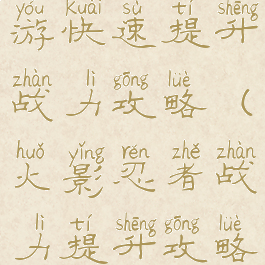 yóu kuài sù tí shēng
游快速提升
zhàn lì gōng lüè
战力攻略（
huǒ yǐng rěn zhě zhàn
火影忍者战
lì tí shēng gōng lüè
力提升攻略